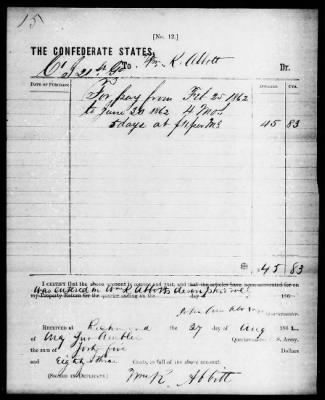 15
[No. 12.]
THE CONFEDERATE STATES,
To Wm. K. Abbott Dr.
DATE OF PURCHASE. DOLLARS. CTS.
For pay from Feb 25 1862
to June 30 1862 4 Mos
5 days at $11 per Mo 45 83
45 83
I CERTIFY that the above account is correct and just, and that the articles have been accounted for on
was entered on Wm K Abbott's descriptive roll
my Property Return for the quarter ending on the day of 186
Quartermaster.
RECEIVED at Richmond the 27 day of Aug 186
of Maj Jno Ambler Quartermaster C. S. Army,
the sum of forty five Dollars
and Eighty three Cents, in full of the above account.
(SIGNED IN DUPLICATE.) Wm K. Abbott